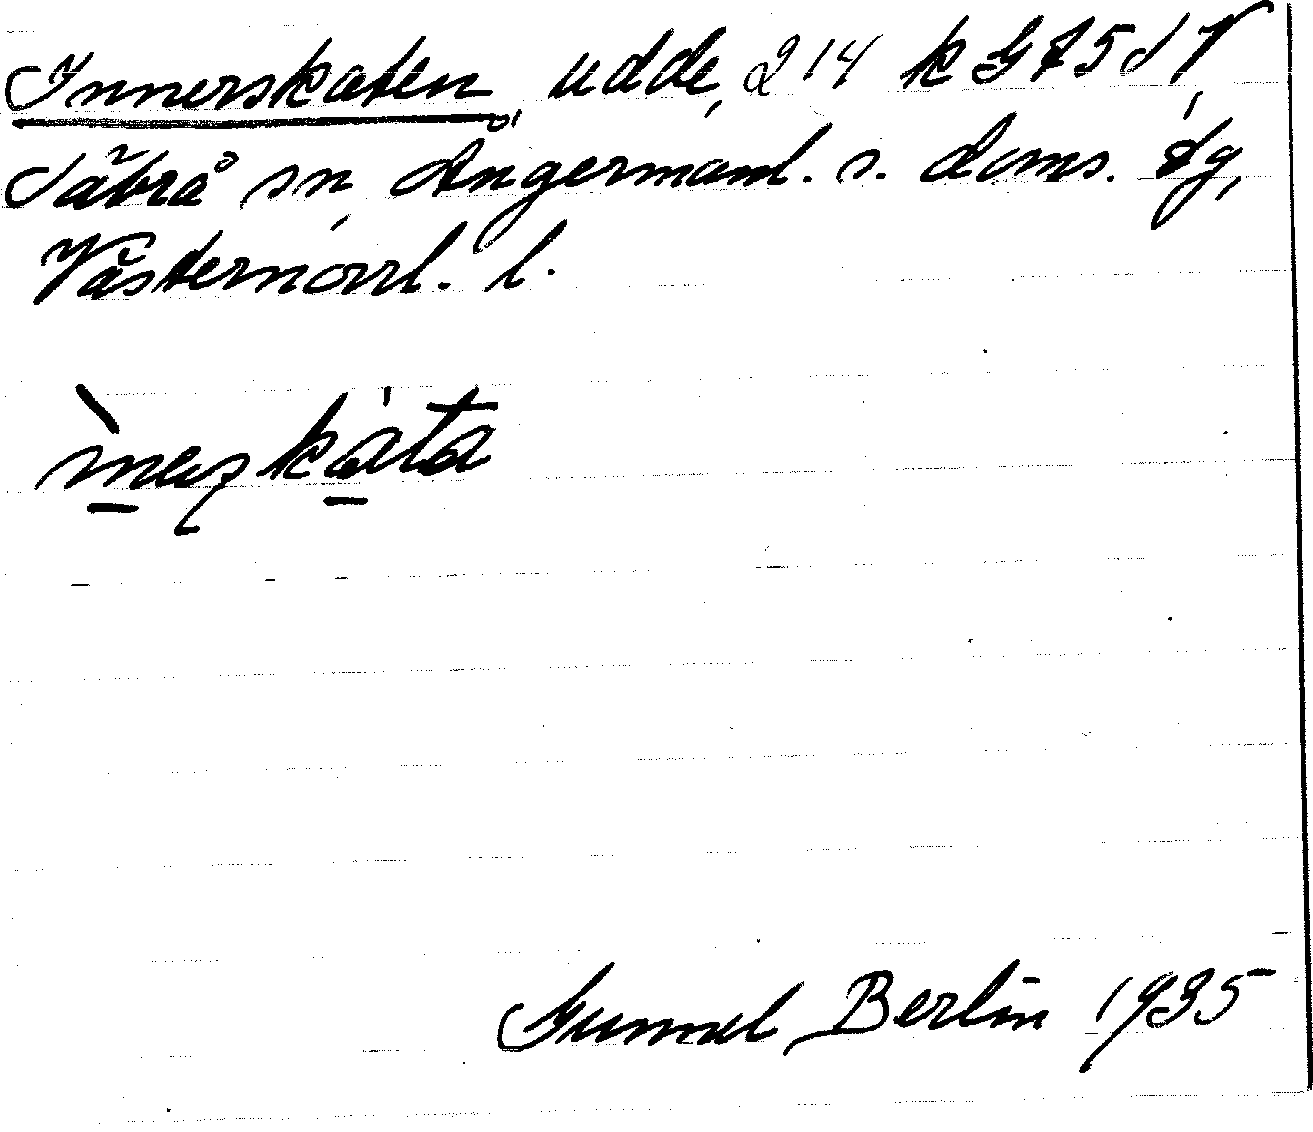 Innerskaten, udde, 214 k G 75 d V
Säbrå sn Ångermanl. s. doms. tg,
Västernorrl. l.
ìnerskáta
Gunnel Berlin 1935